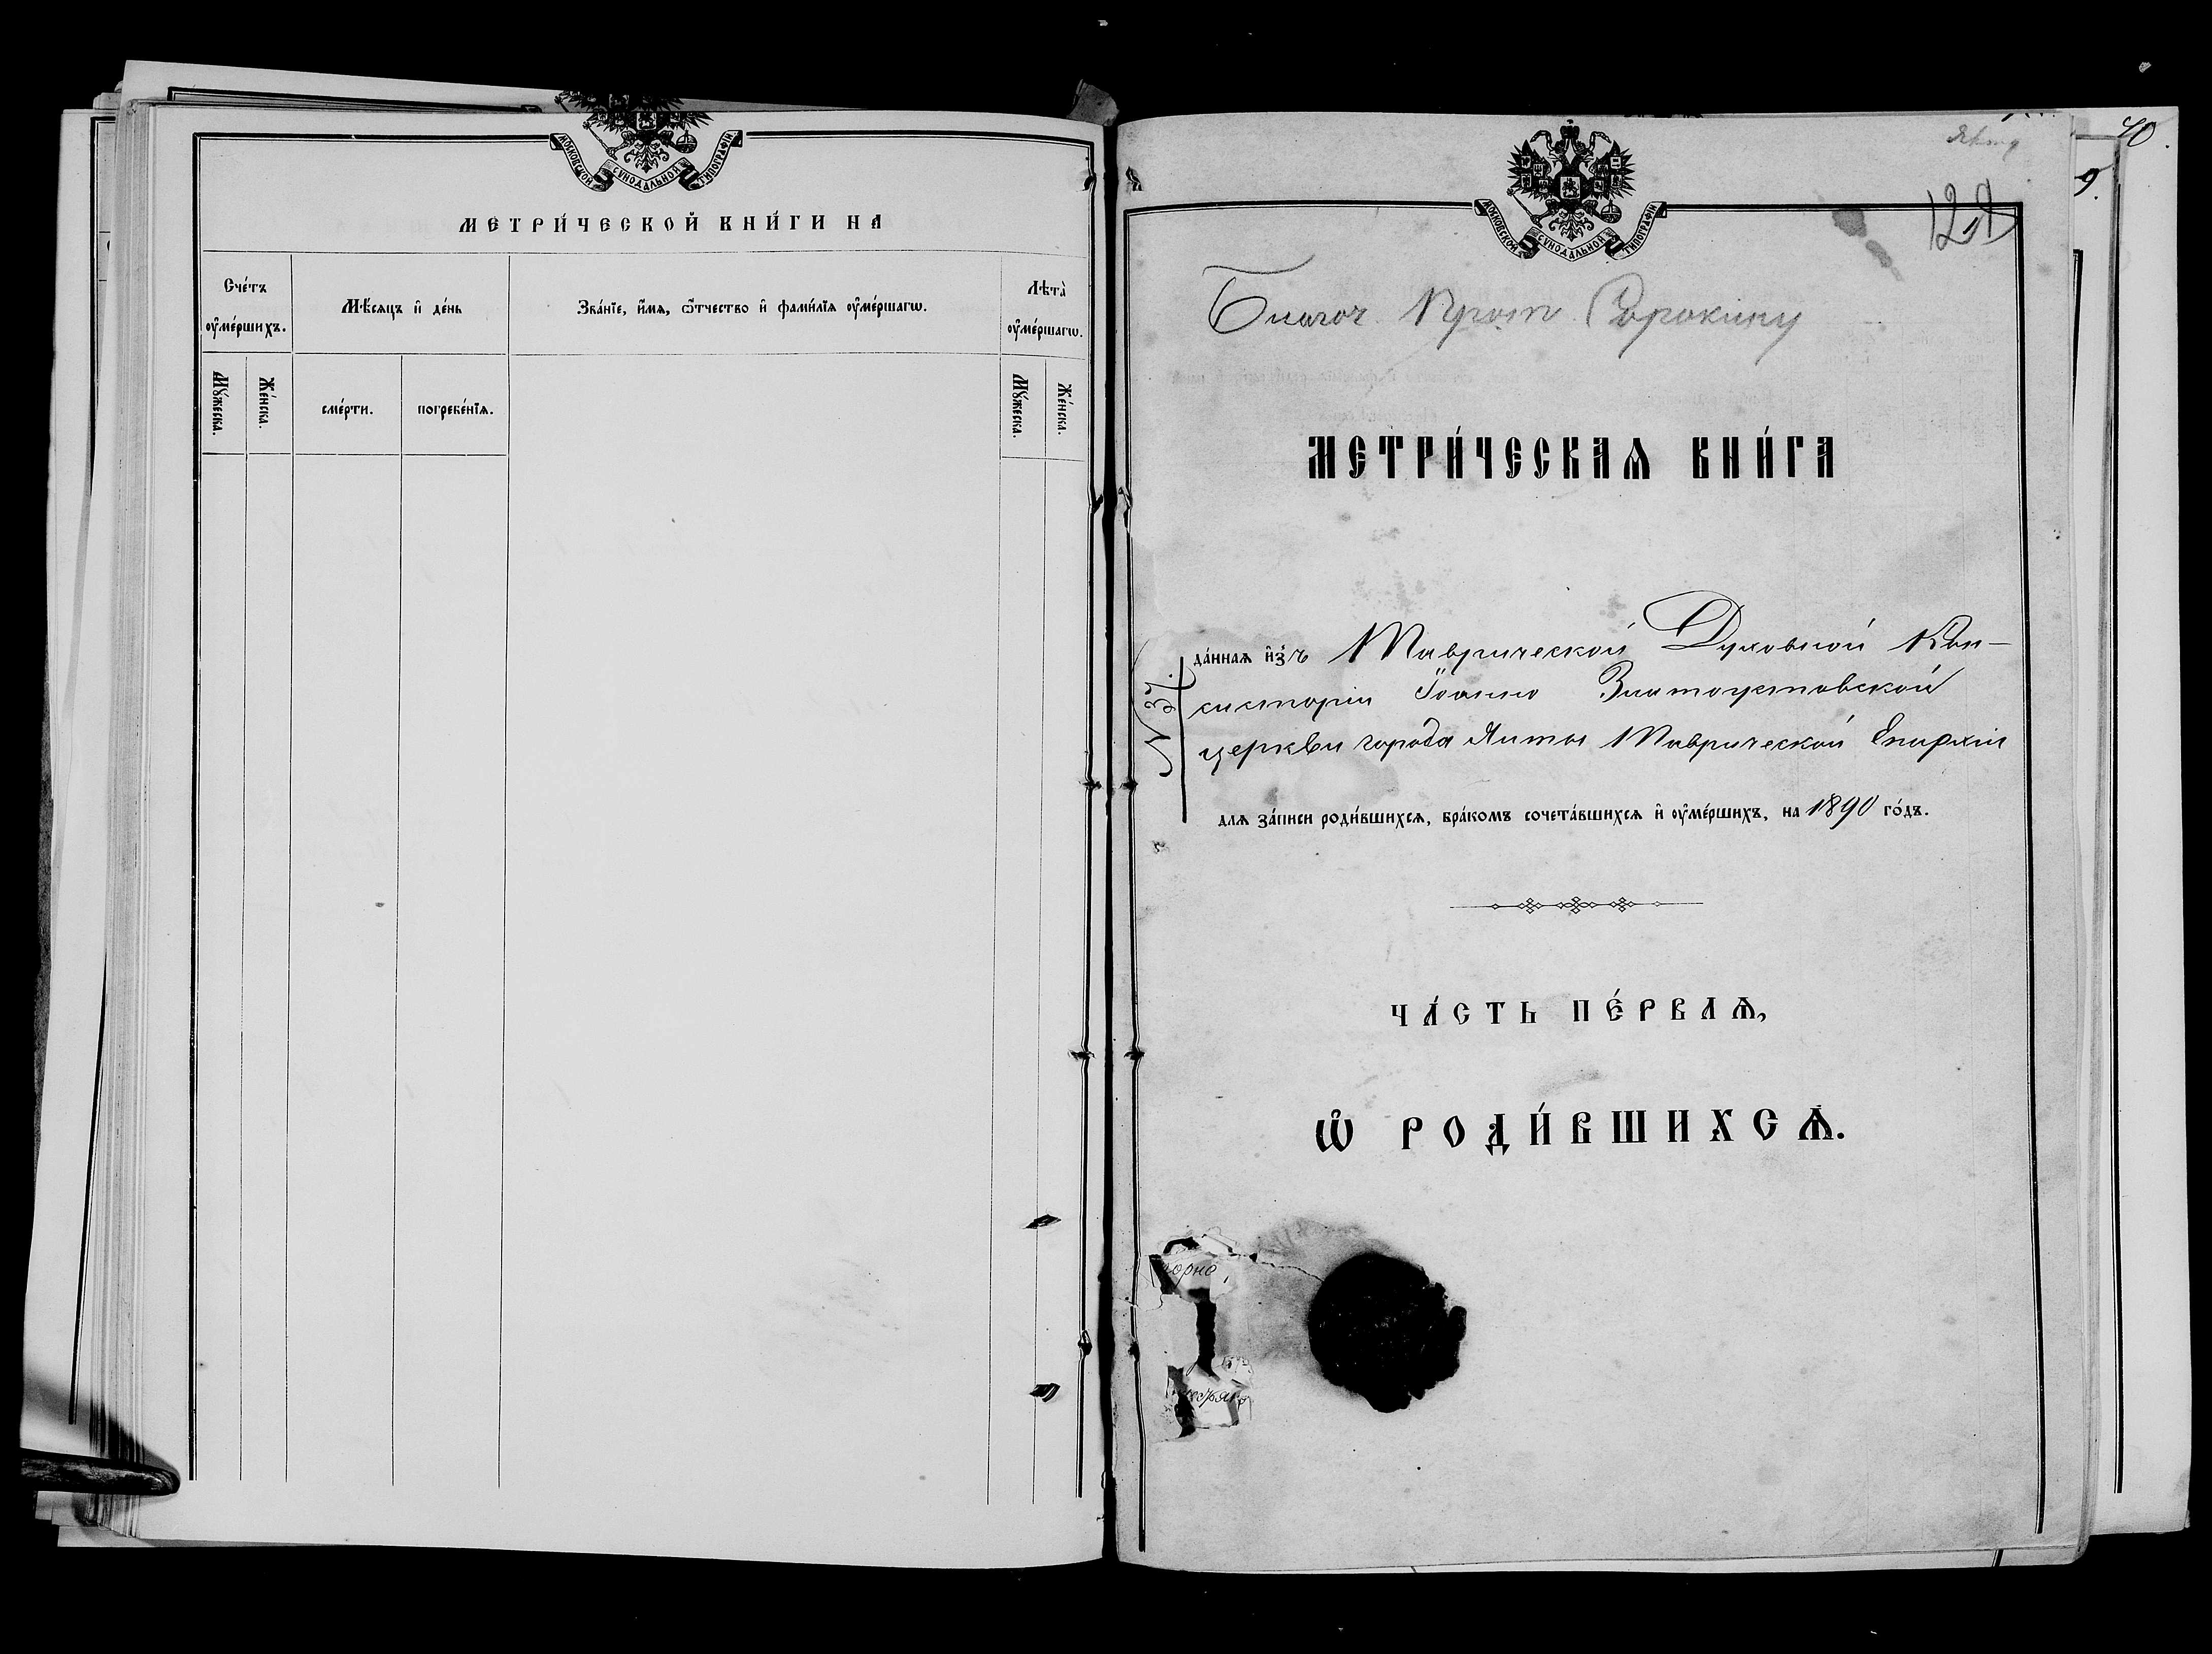 МОСКОВСКОЙ СУНОДАЛЬНОЙ ТИПОГРАФІИ
МЕТРИ́ЧЕСКОЙ КНИ́ГИ НА
Сче́тъ ᲂу҆ме́ршихъ.
Мѣ́сяцъ и҆ де́нь
Зва́нїе, и҆́мѧ, ѻ҆́тчество и҆ фами́лїѧ ᲂу҆ме́ршагѡ.
Лѣта̀ ᲂу҆ме́ршагѡ.
Мꙋ́жеска.
Же́нска.
сме́рти.
погребе́нїѧ.
Мꙋ́жеска.
Же́нска.
40
9.
Ялта
МОСКОВСКОЙ СУНОДАЛЬНОЙ ТИПОГРАФІИ
Благоч. Прот. Сорокину
МЕТРИ́ЧЕСКАѦ КНИ́ГА
да́ннаѧ и҆з̾ъ Таврической Духовной Кон-
систоріи Іоанно Златоустовской
церкви города Ялты Таврической Епархіи
длѧ за́писи роди́вшихсѧ, бра́комъ сочета́вшихсѧ и҆ ᲂу҆ме́ршихъ, на 1890 го́дъ.
ЧА́СТЬ ПЕ́РВАѦ,
Ѡ҆ РОДИ́ВШИХСѦ.